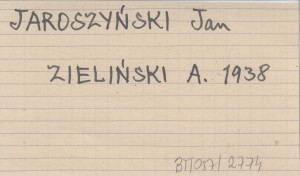 JAROSZYŃSKI Jan
ZIELIŃSKI A. 1938
BT/057/2774